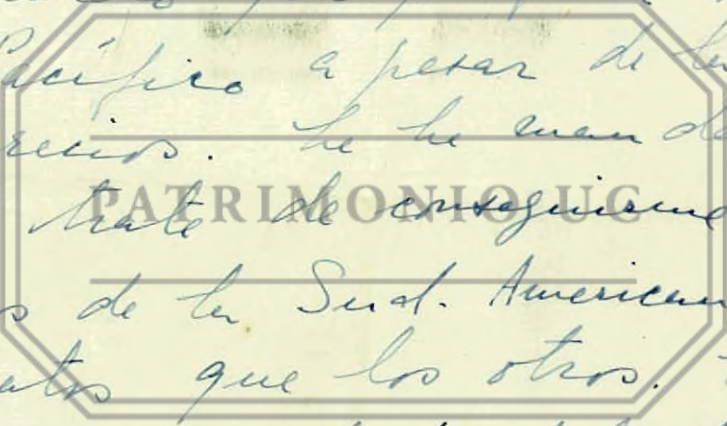 Pacífico a pesar de la
recios. Le he man de
PATRIMONIO UC
trate de conseguirme
s de la Sud. American
atos que los otros.